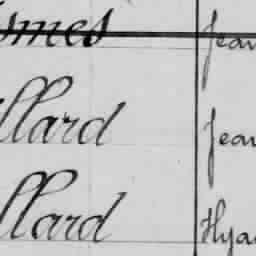 omes Jean
llard Jean
llard Hya